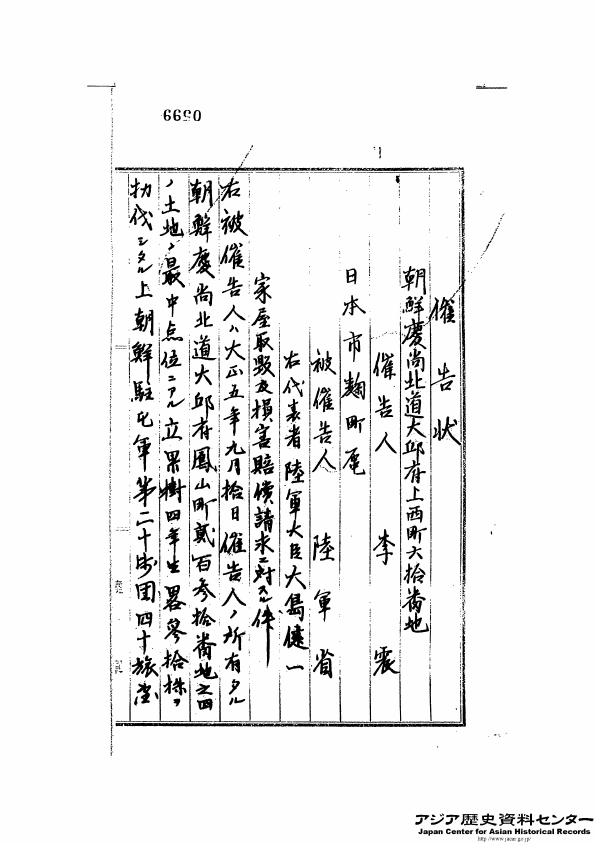 0599
催告状
朝鮮慶尚北道大邱府上西町六拾番地
催告人 李 震
日本市麹町區
被催告人 陸軍省
右代表者陸軍大臣大島健一
家屋取毀及損害賠償請求ニ対スル件
右被催告人ハ大正五年九月拾日催告人ノ所有タル
朝鮮慶尚北道大邱府鳳山町貳百参拾番地之四
ノ土地ノ最中点位ニアル立果樹四年生畧参拾株ヲ
伐シタル上朝鮮駐屯軍第二十師団四十旅
アジア歴史資料センター
Japan Center for Asian Historical Records
http://www.jacar.go.jp/